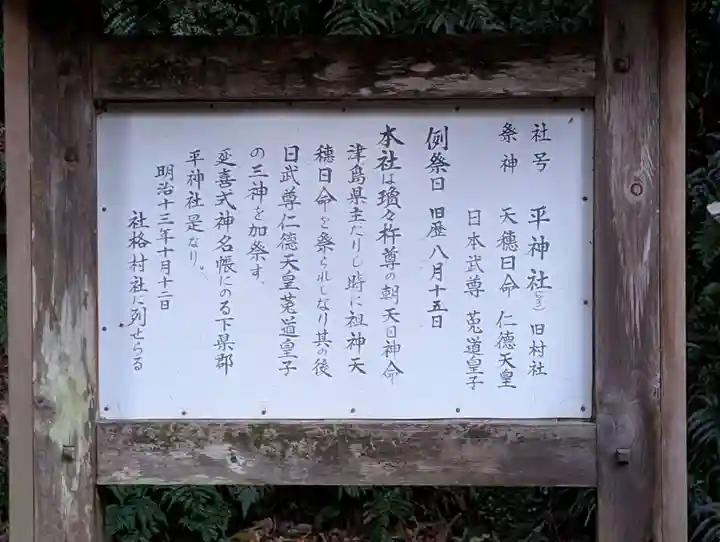 社号 平神社 旧村社
祭神 天穗日命 仁德天皇
日本武尊 菟道皇子
例祭日 旧歴八月十五日
本社は瓊々杵尊の朝天日神命
津島県主たりし時に祖神天
穗日命を祭られしなり其の後
日武尊仁德天皇菟道皇子
の三神を加祭す、
延喜式神名帳にのる下県郡
平神社是なり。
明治十三年十月十二日
社格村社に列せらる